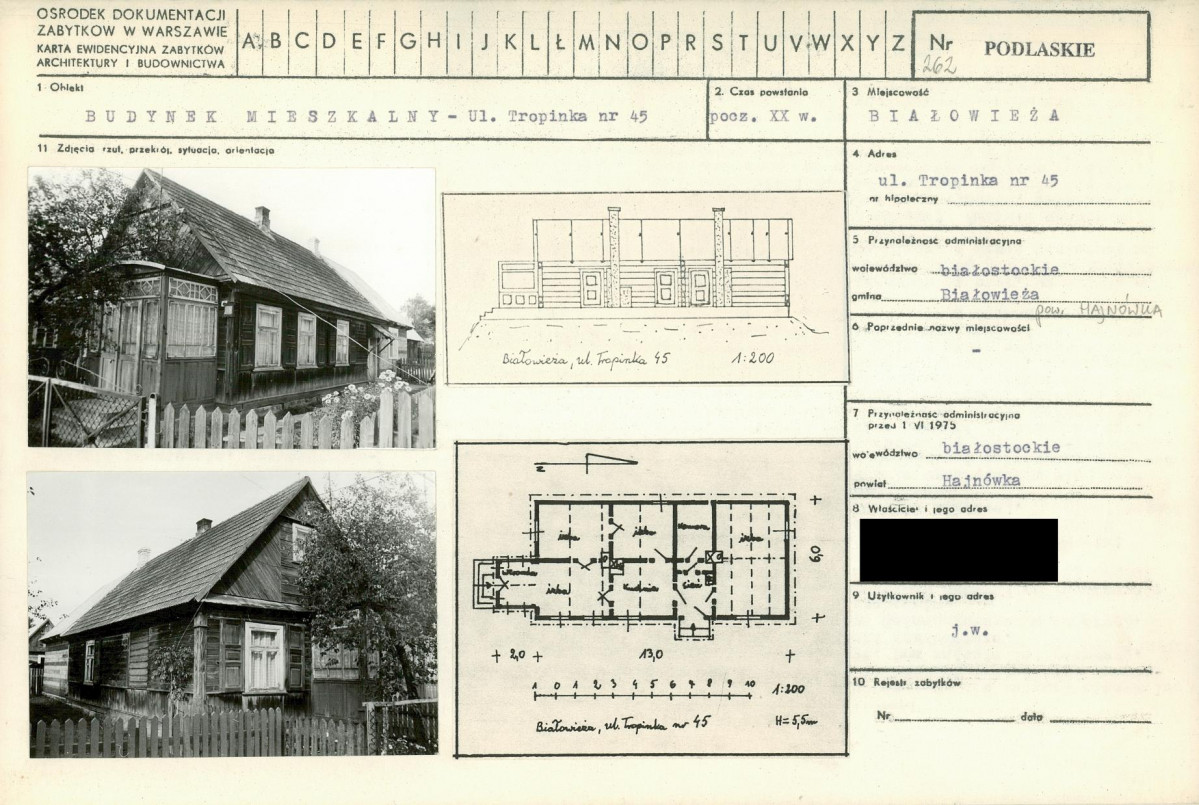 OŚRODEK DOKUMENTACJI
ZABYTKÓW W WARSZAWIE
KARTA EWIDENCYJNA ZABYTKÓW
ARCHITEKTURY I BUDOWNICTWA
A B C D E F G H I J K L Ł M N O P R S T U V W X Y Z
Nr 262
PODLASKIE
1 Obiekt
BUDYNEK MIESZKALNY - Ul. Tropinka nr 45
2. Czas powstania
pocz. XX w.
3 Miejscowość
BIAŁOWIEŻA
11 Zdjęcia rzut, przekrój, sytuacja, orientacja
4 Adres
ul. Tropinka nr 45
nr hipoteczny
5 Przynależność administracyjna
województwo białostockie
gmina Białowieża
pow. HAJNÓWKA
6 Poprzednie nazwy miejscowości
-
Białowieża, ul. Tropinka 45 1:200
7 Przynależność administracyjna
przed 1 VI 1975
województwo białostockie
powiat Hajnówka
8 Właściciel i jego adres
9 Użytkownik i jego adres
j.w.
10 Rejestr zabytków
Nr data
N
izba izba komora izba
weranda izba kuchnia sień
6,0
2,0 13,0
1 0 1 2 3 4 5 6 7 8 9 10 1:200
Białowieża, ul. Tropinka nr 45 H=5,5m